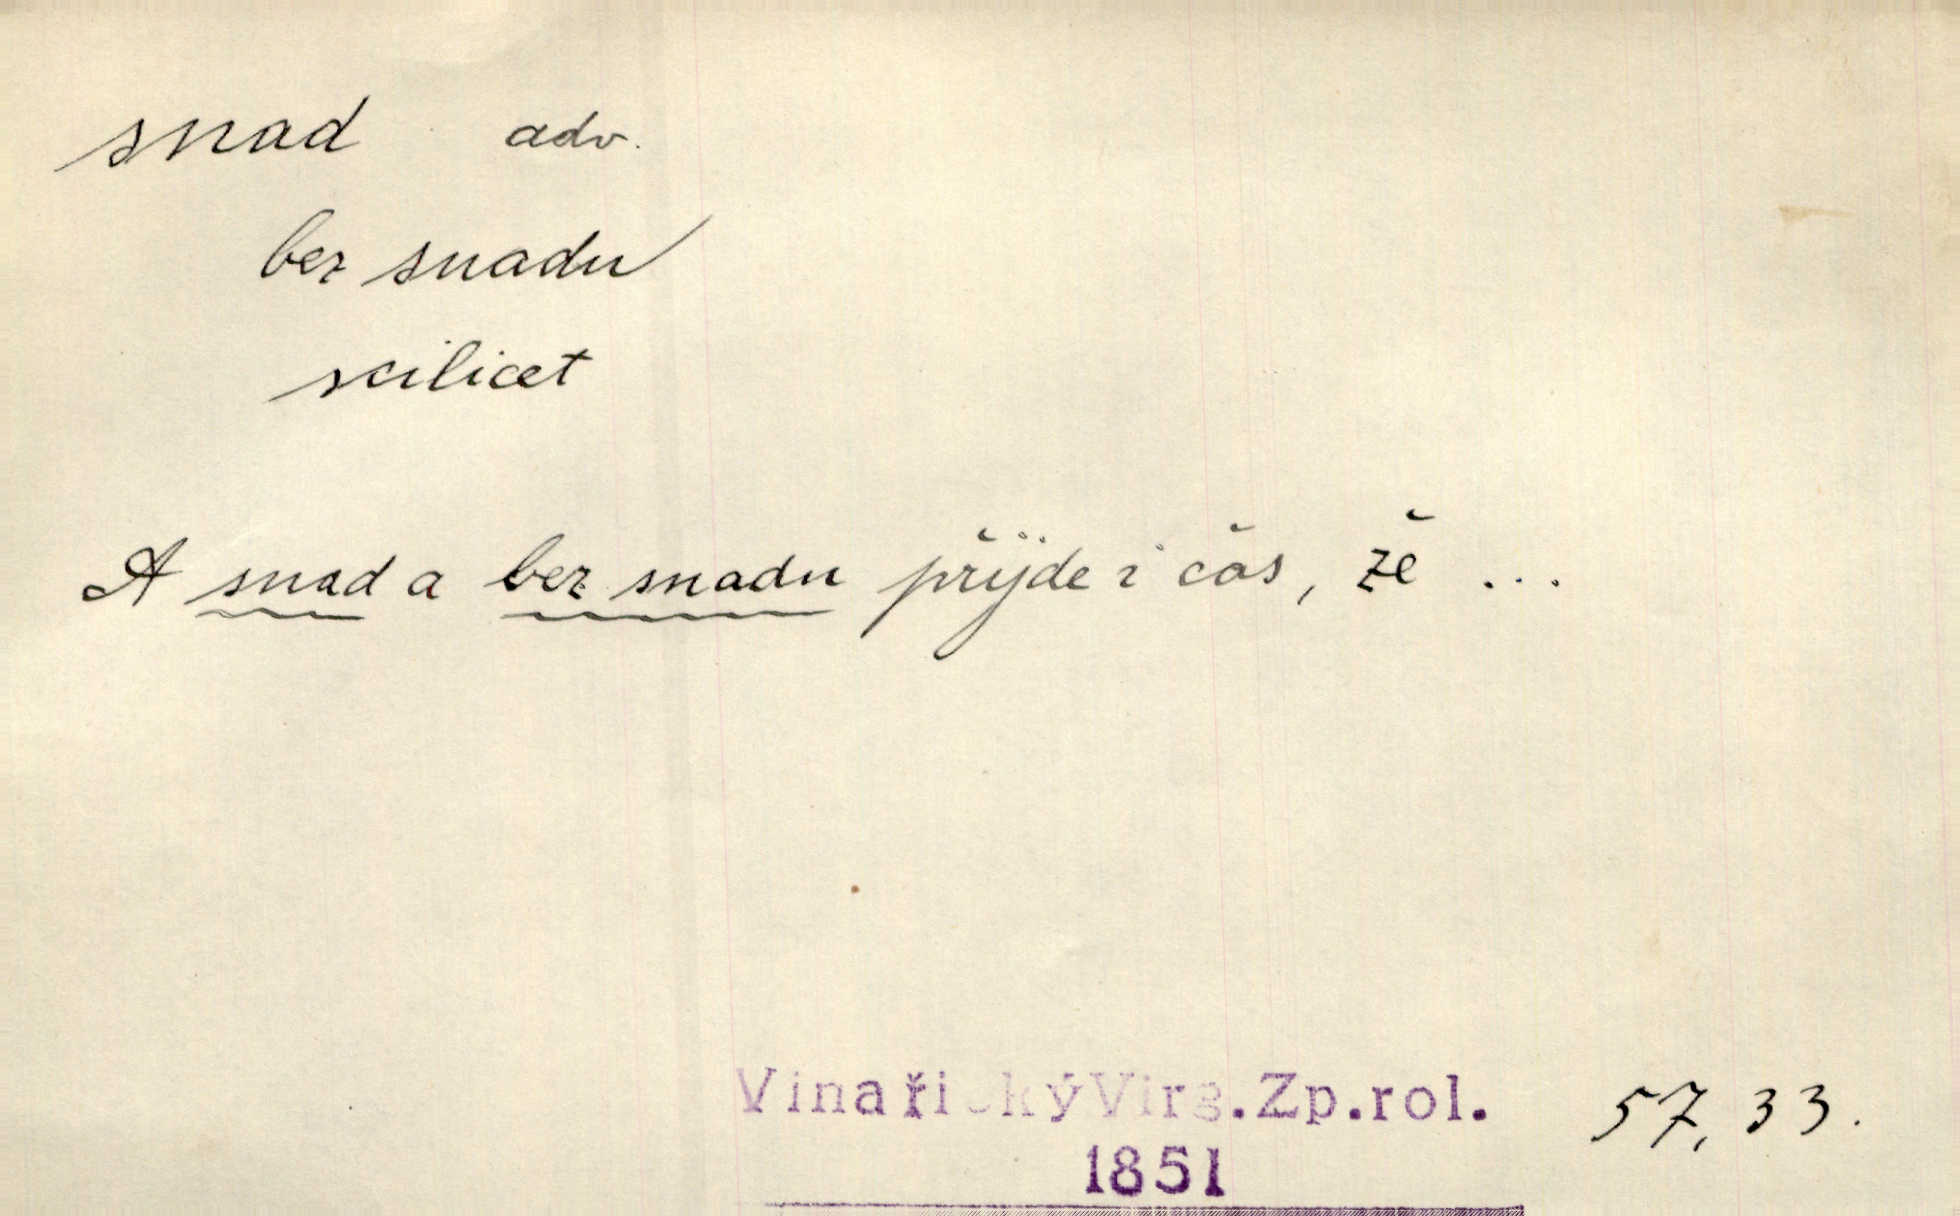 snad adv.
bez snadu
scilicet
A snad a bez snadu přijde i čas, že ...
Vinařický Virg. Zp. rol. 57, 33.
1851